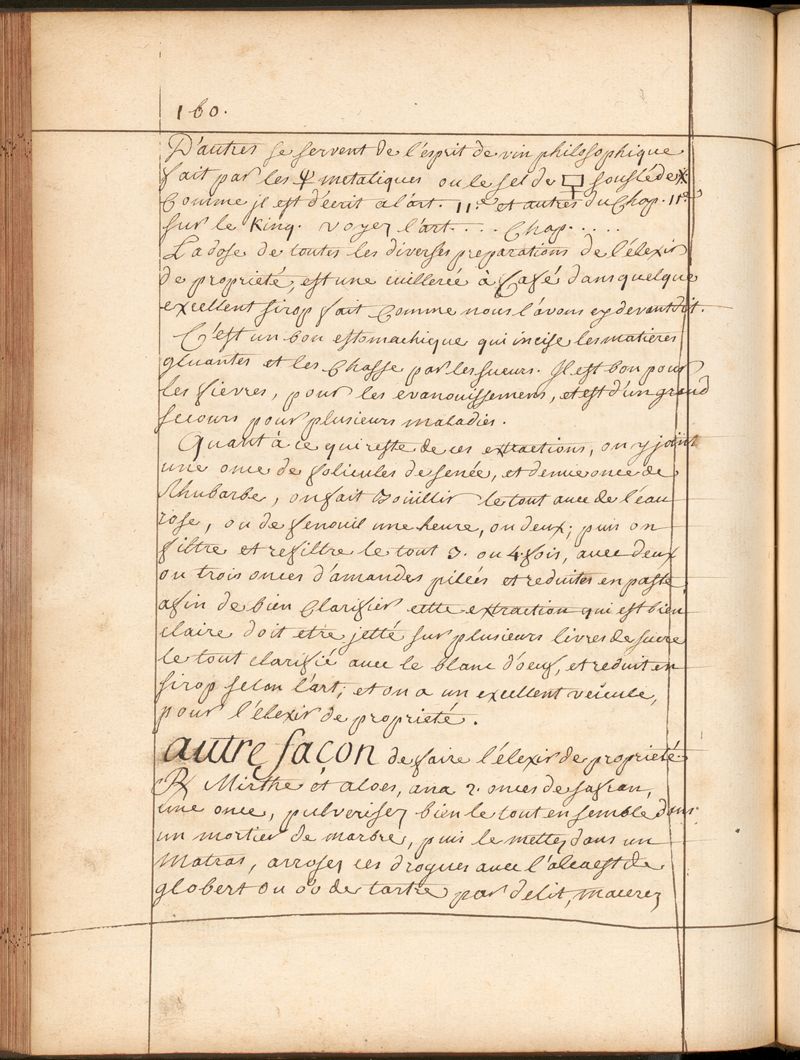 160.
D'autres se servent de l'esprit de vin philosophique
fait par les metaliques ou le sel de souflé de
Comme il est d'écrit a l'art. 11.e et autres du Chap. 11.e
sur le King. voyez l'art.... Chap.....
La dose de toutes les diverses preparations de l'élexir
de proprieté, est une cuillereé à Café dans quelque
excellent sirop fait Comme nous l'avons cy devant dit.
C'est un bon estomachique qui incise les matieres
gluantes et les Chasse par les sueurs. Il est bon pour
les fievres, pour les evanouissemens, et est d'un grand
secours pour plusieurs maladies.
Quant à ce qui reste de ces extractions, on y joint
une once de folicules de senée, et demie once de
Rhubarbe, on fait Boüillir le tout avec de l'eau
rose, ou de fenouil une heure, ou deux; puis on
filtre et refiltre le tout 3. ou 4. fois, avec deux
ou trois onces d'amandes pileés et reduites en paste,
afin de bien Clarifier cette extraction qui est bien
claire doit etre jetté sur plusieurs livres de sucre
le tout clarifié avec le blanc d'oeuf, et reduit en
sirop selon l'art; et on a un excellent veïcule,
pour l'élexir de proprieté.
autre façon de faire l'élexir de proprieté
℞ Mirrhe et aloes, ana 2. onces de safran,
une once, pulverisez bien le tout ensemble dans
un mortier de marbre, puis le mettez dans un
Matras, arrosez ces drogues avec l'alcaest de
globert ou de tartre par delit, macerez